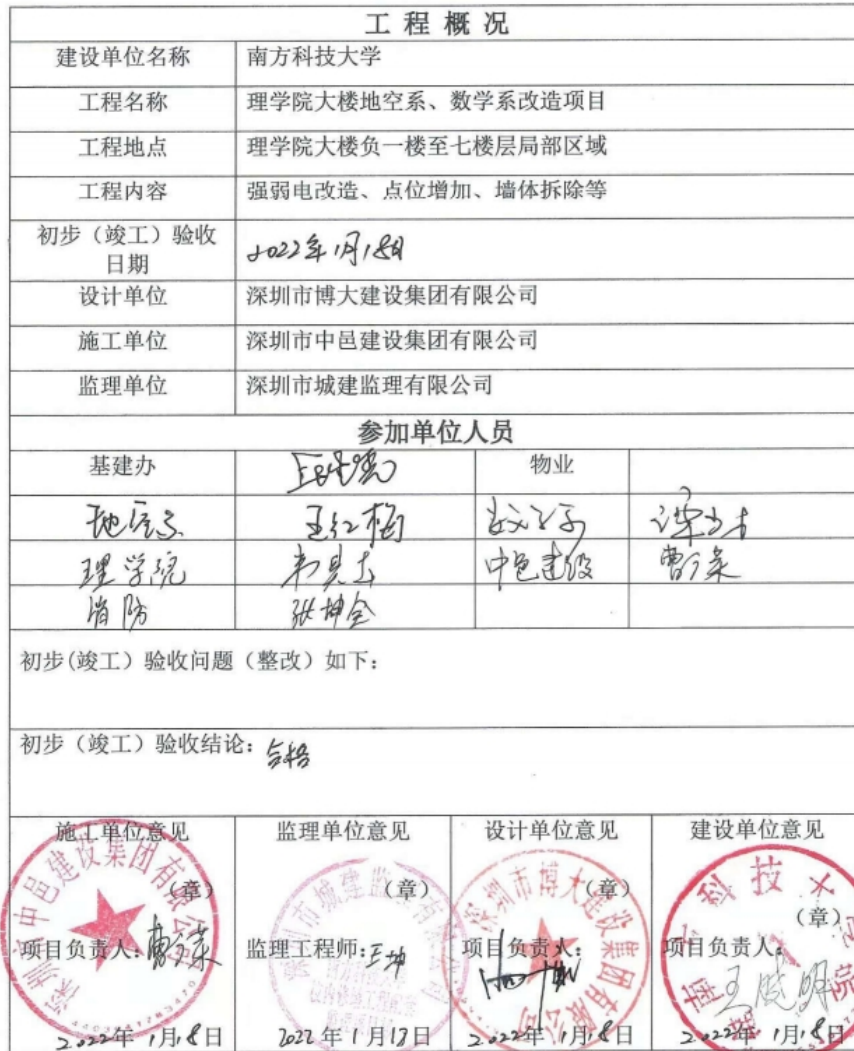 工程概况
建设单位名称 南方科技大学
工程名称 理学院大楼地空系、数学系改造项目
工程地点 理学院大楼负一楼至七楼层局部区域
工程内容 强弱电改造、点位增加、墙体拆除等
初步（竣工）验收
日期 2022年1月18日
设计单位 深圳市博大建设集团有限公司
施工单位 深圳市中邑建设集团有限公司
监理单位 深圳市城建监理有限公司
参加单位人员
基建办 物业
地空系 王红梅
理学院 中邑建设
消防 张坤全
初步(竣工）验收问题（整改）如下：
初步（竣工）验收结论：合格
施工单位意见 监理单位意见 设计单位意见 建设单位意见
（章） （章） （章） （章）
项目负责人： 监理工程师：王坤 项目负责人： 项目负责人：王晓明
2022年1月18日 2022年1月18日 2022年1月18日 2022年1月18日
深圳市中邑建设集团有限公司
深圳市城建监理有限公司
深圳市博大建设集团有限公司
南方科技大学